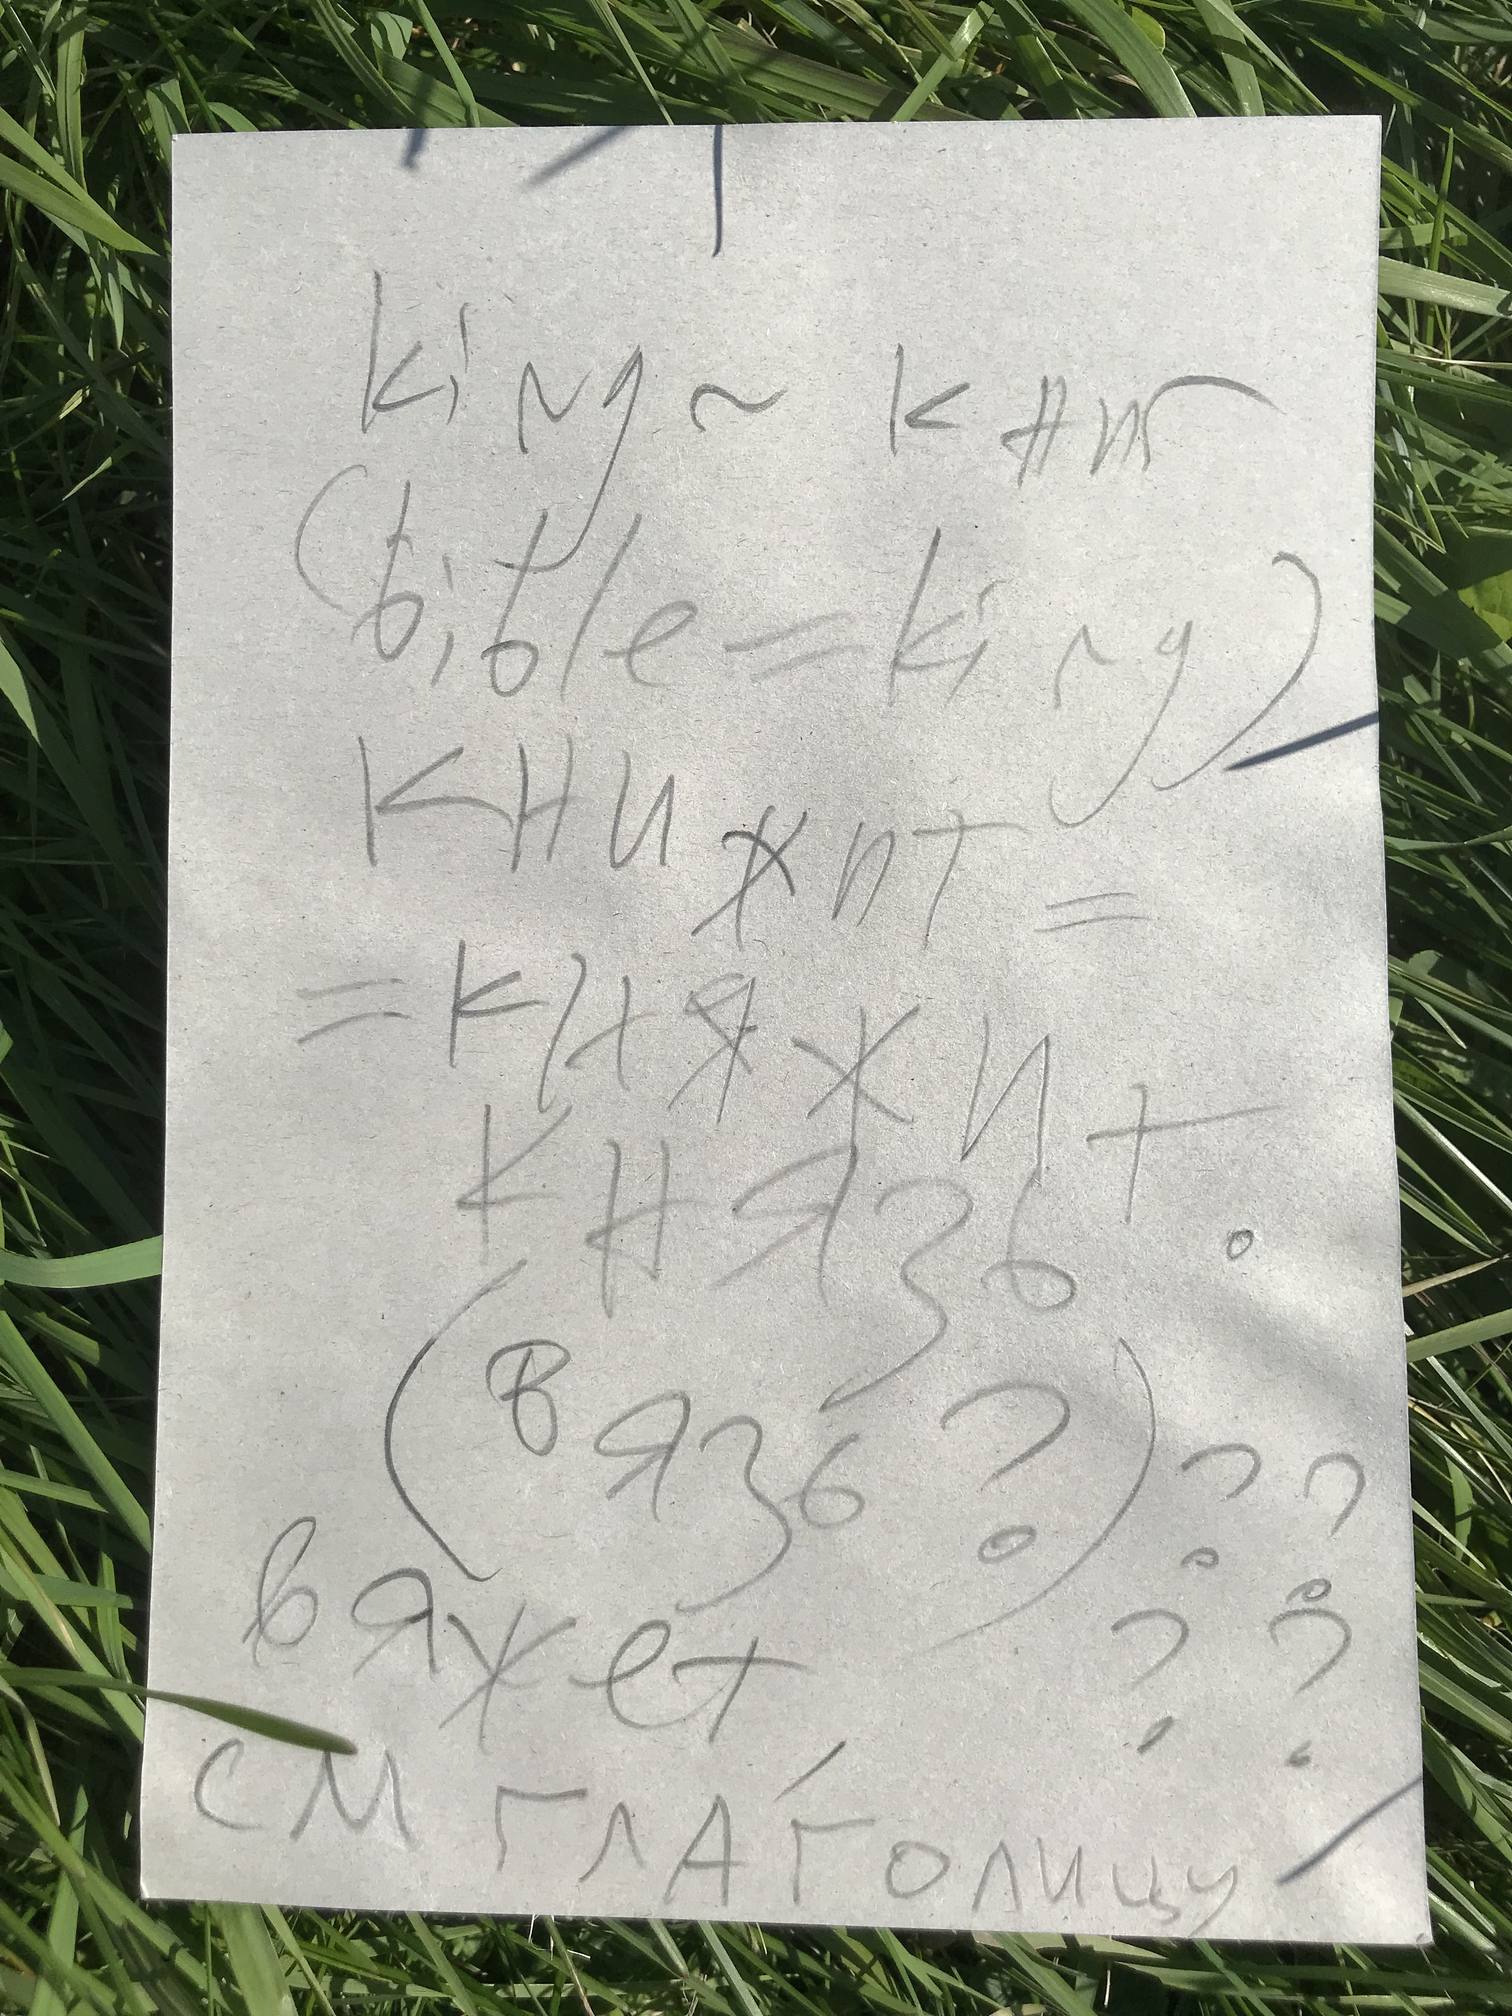 king ~ книг
(bible = king)
книжит =
= княжит.
князь
(вязь?) ??
вяжет ??
см глаголицу